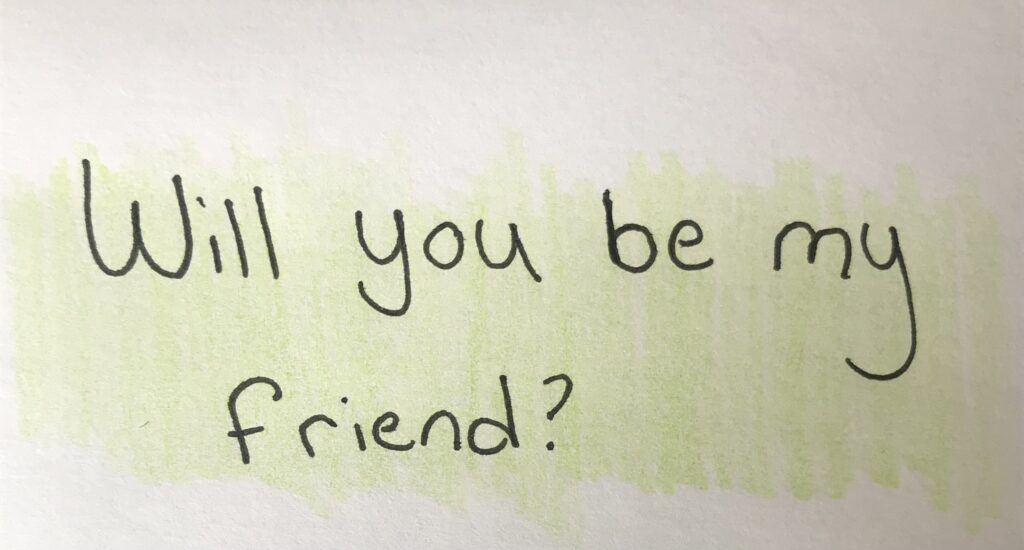 Will you be my
friend?